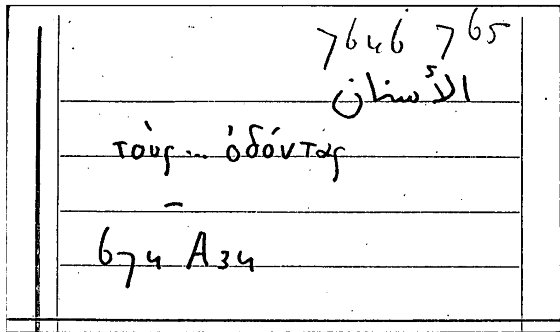 7646 765
الأسنان
τοὺς... ὀδόντας
–
674 A34